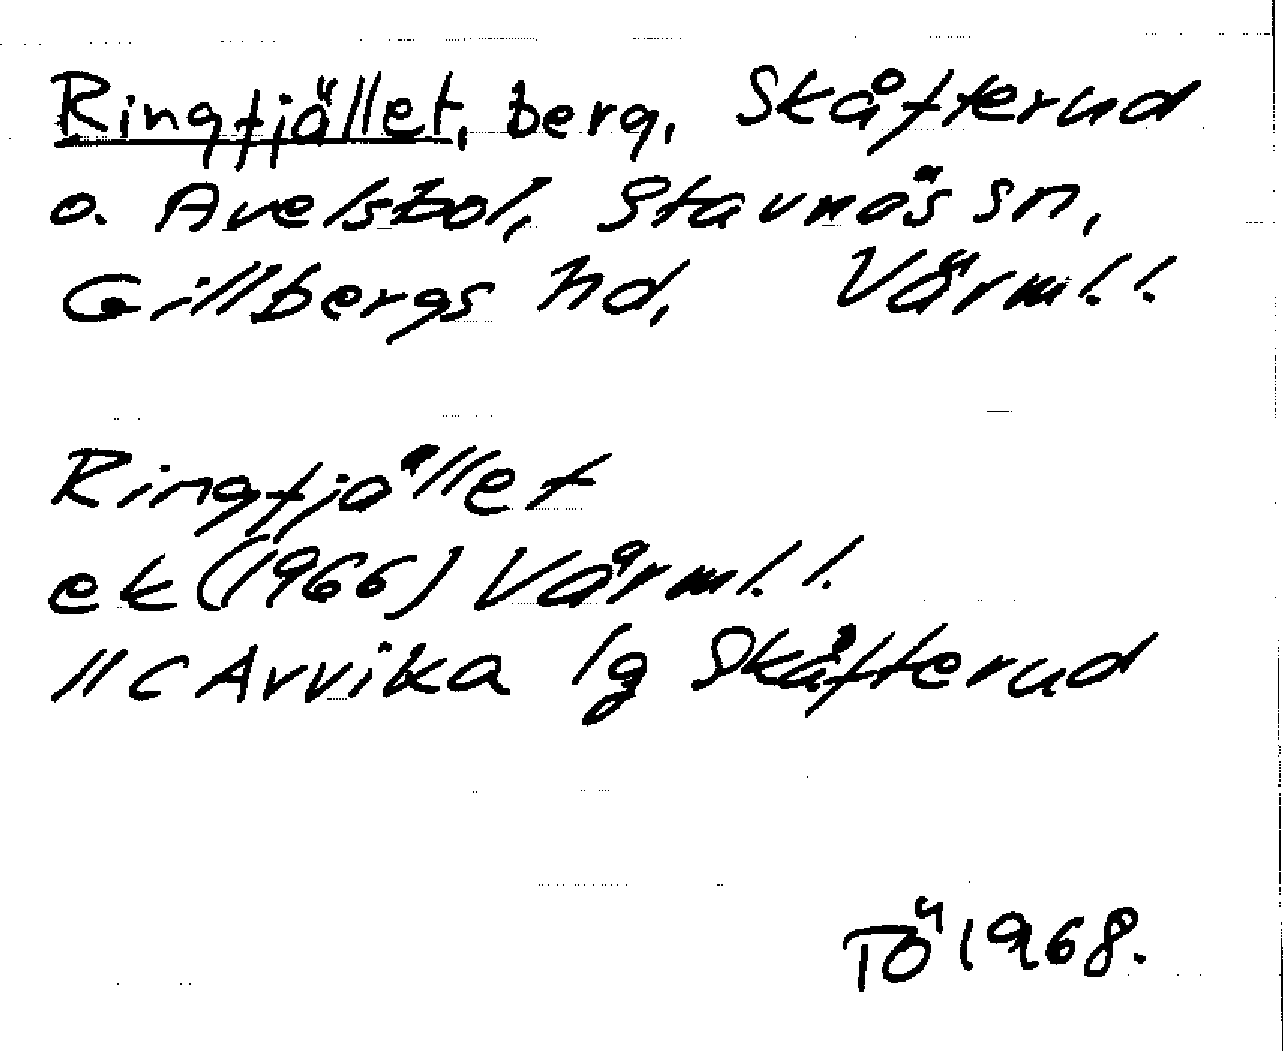 Ringfjället, berg, Skåfterud
o. Avelsbol, Stavnäs sn,
Gillbergs hd, Värml. l.
Ringfjället
ek (1966) Värml. l.
11 C Arvika lg Skåfterud
TÖ 1968.